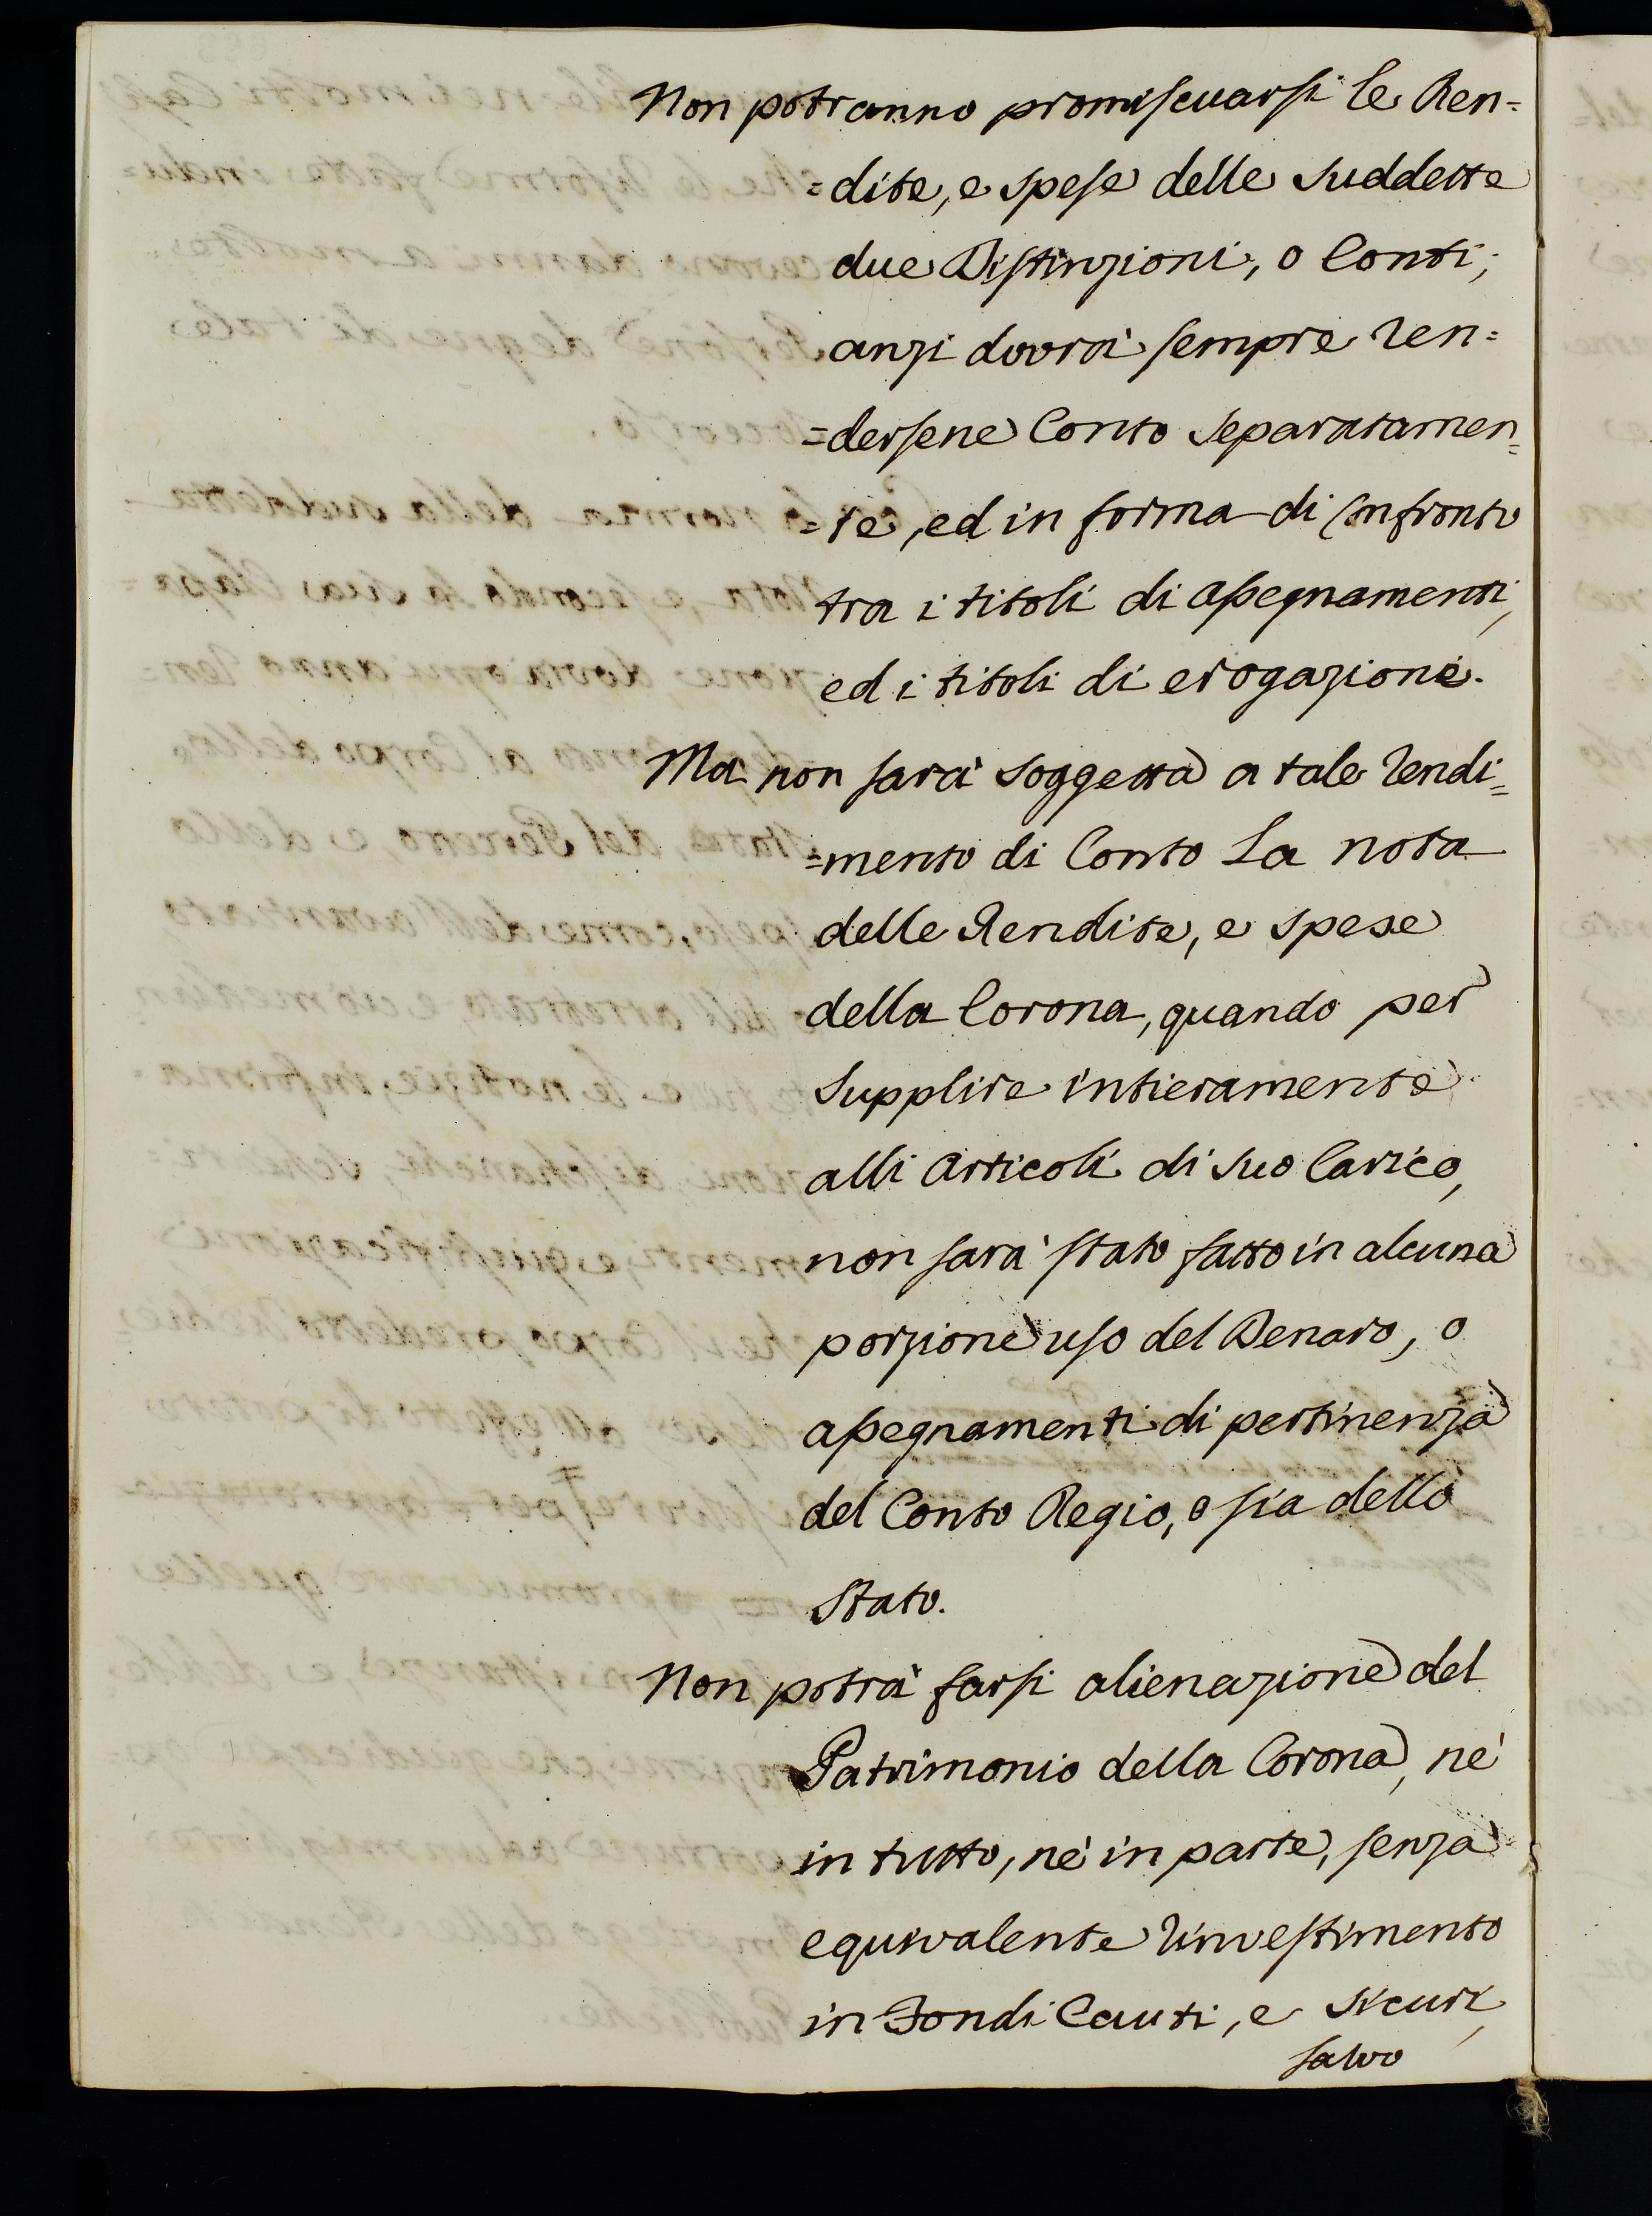 Non potranno promiscuarsi le Ren=
=dite, e spese delle suddette
due Distinzioni, o Conti;
anzi dovrà sempre ren=
=dersene Conto separatamen=
=te, ed in forma di Confronto
tra i titoli di assegnamenti,
ed i titoli di erogazione.
Ma non sarà soggetta a tale rendi=
=mento di Conto La nota
delle Rendite, e spese
della Corona, quando per
supplire intieramente
alli articoli di suo Carico,
non sarà stato fatto in alcuna
porzione uso del Denaro, o
assegnamenti di pertinenza
del Conto Regio, o sia dello
Stato.
Non potrà farsi alienazione del
Patrimonio della Corona, nè
in tutto, nè in parte, senza
equivalente rinvestimento
in Fondi Cauti, e sicuri,
salvo